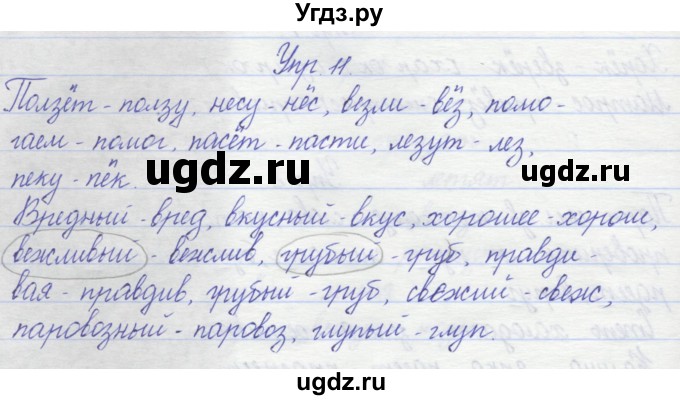 Угдз.ру
Упр. 11.
Ползёт - ползу, несу - нёс, везли - вёз, помо-
гаем - помог, пасёт - пасти, лезут - лез,
пеку - пёк.
Вредный - вред, вкусный - вкус, хорошее - хорош,
вежливый - вежлив, грубый - груб, правди-
вая - правдив, грубый - груб, свежий - свеж,
паровозный - паровоз, глупый - глуп.
ugdz.ru
ugdz.ru
ugdz.ru
ugdz.ru